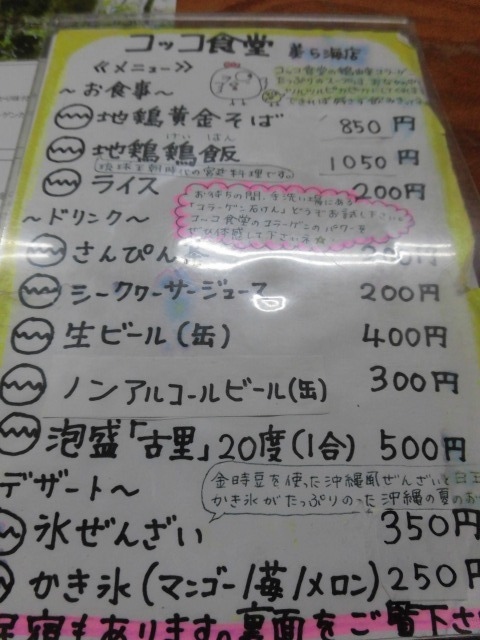 コッコ食堂 美ら海店
≪メニュー≫
〜お食事〜
地鶏黄金そば 850円
けい はん
地鶏鶏飯 1050円
琉球王朝時代の宮廷料理です。
ライス 200円
お待ちの間、手洗い場にある
「コラーゲン石けん」どうぞお試し下さい。
コッコ食堂のコラーゲンのパワーを
ぜひ体感して下さいネ☆
〜ドリンク〜
さんぴん茶 円
シークワーサージュース 200円
生ビール(缶) 400円
ノンアルコールビール(缶) 300円
泡盛「古里」20度(1合) 500円
デザート〜
金時豆を使った沖縄風ぜんざいと
かき氷がたっぷりのった沖縄の夏のお
氷ぜんざい 350円
かき氷(マンゴー/苺/メロン) 250円
民宿もあります。裏面をご覧下さ